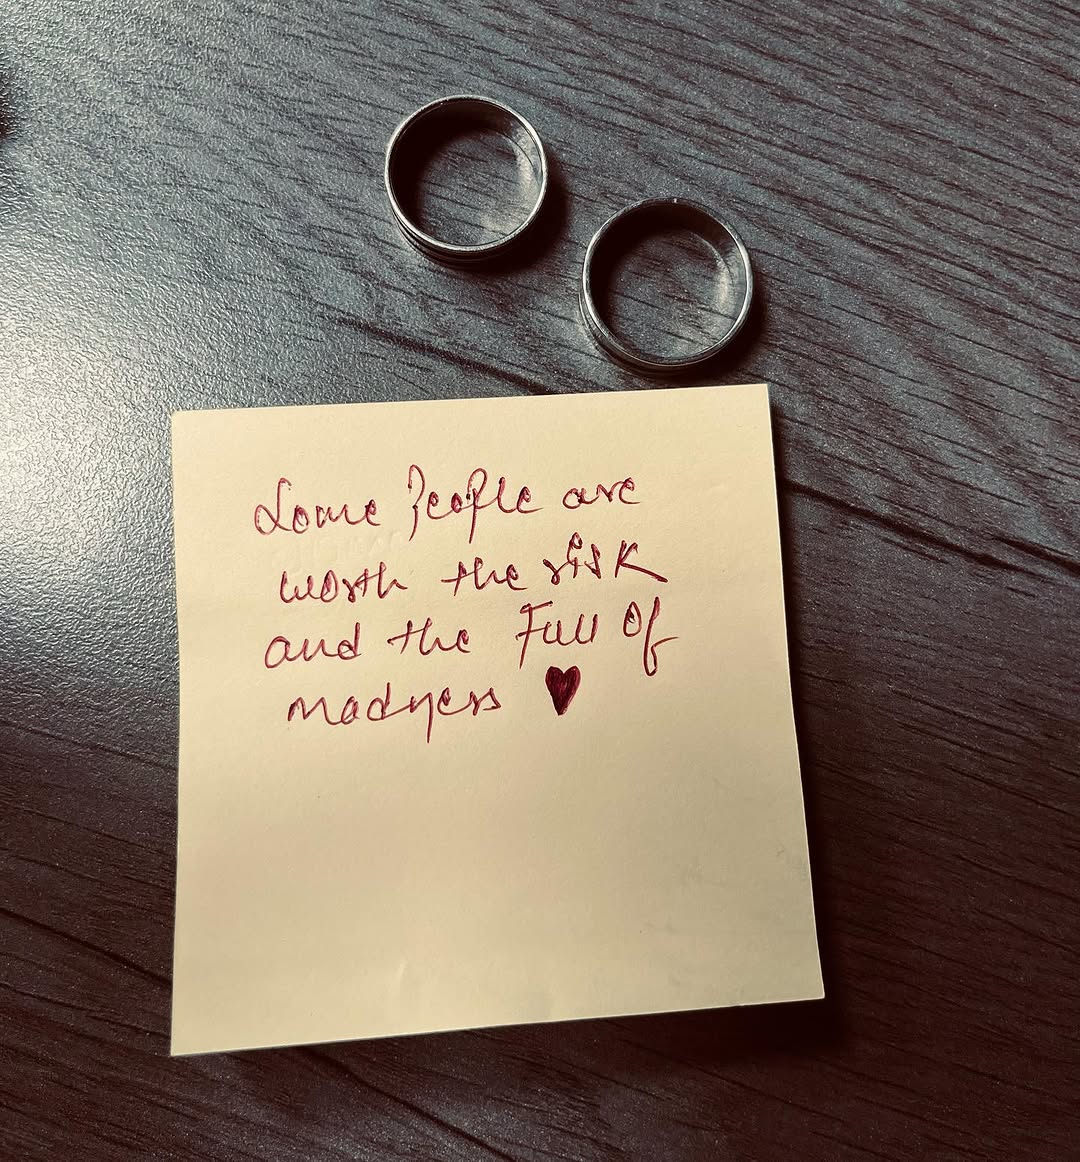 Some People are
worth the risk
and the Full Of
madness ♥